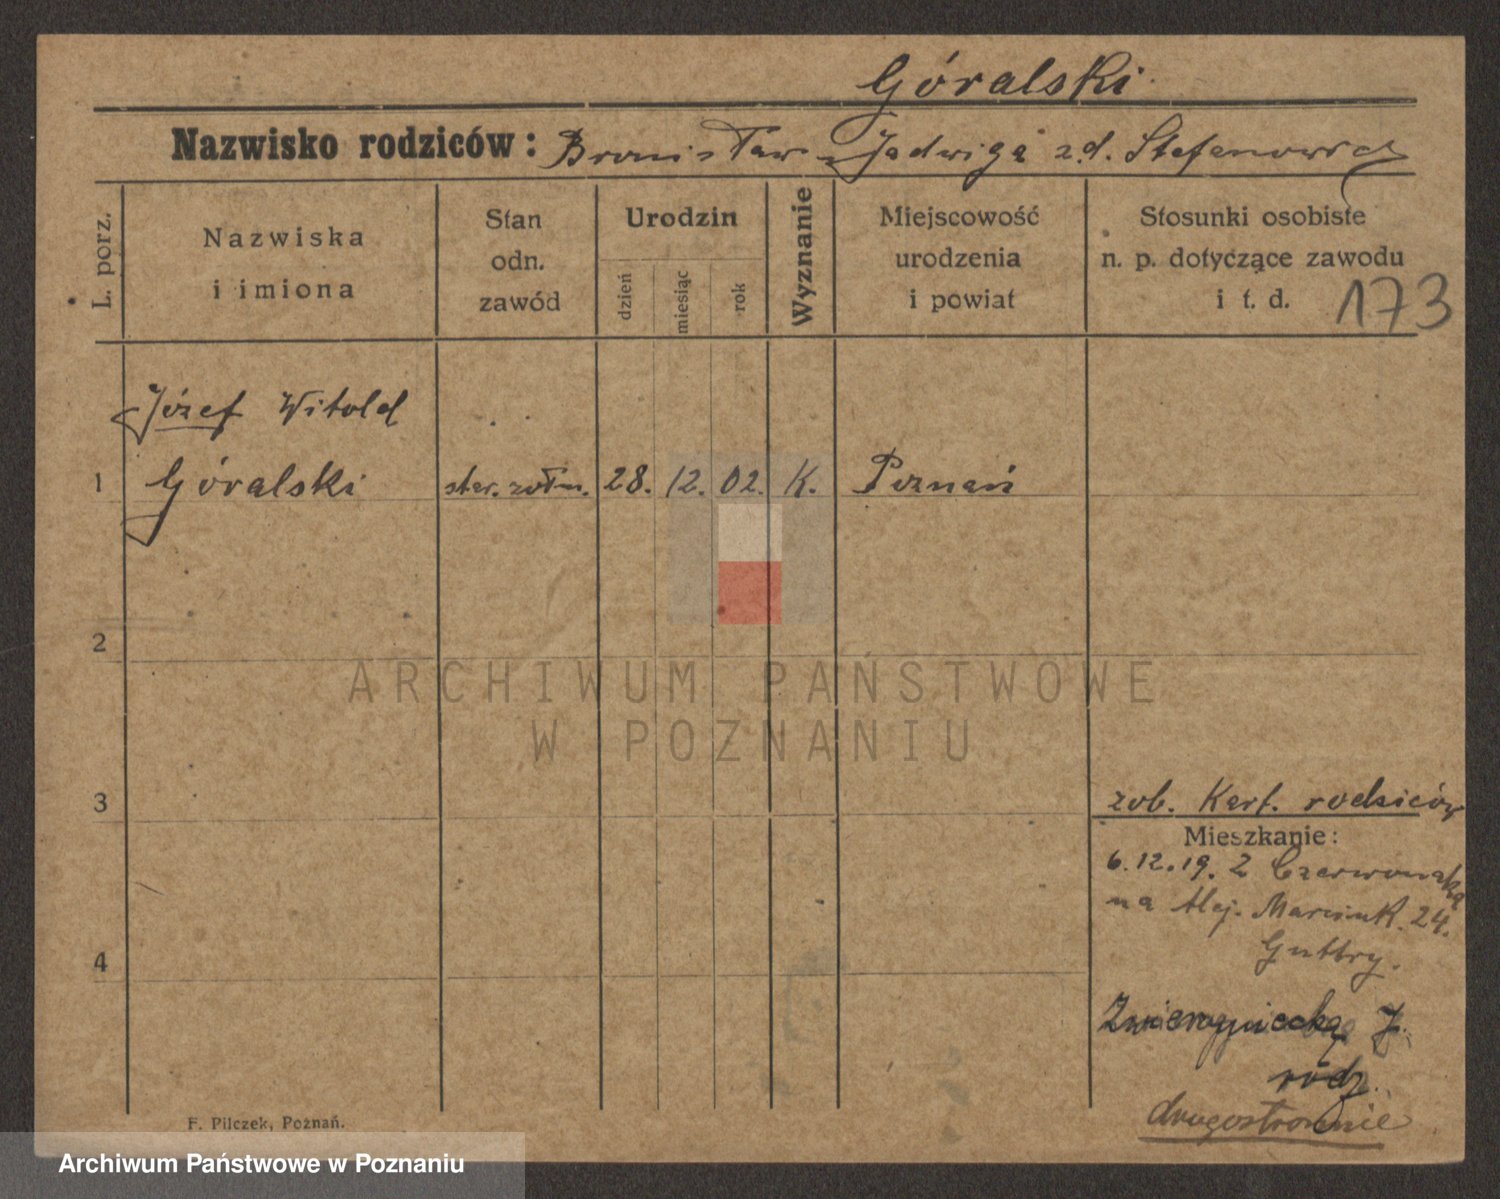 Góralski
Nazwisko rodziców: Bronisław z Jadwigą z.d. Stefanowicz
L. porz.
Nazwiska
i imiona
Stan
odn.
zawód
Urodzin
dzień
miesiąc
rok
Wyznanie
Miejscowość
urodzenia
i powiat
Stosunki osobiste
n. p. dotyczące zawodu
i t. d.
173
Józef Witold
1 Góralski ster. żołn. 28. 12. 02. K. Poznań
2
ARCHIWUM PAŃSTWOWE
W POZNANIU
3
zob. Kart. rodziców
Mieszkanie:
6.12.19. Z Czerwonaka
na Alej. Marcink. 24.
Guttry.
4
Zwierzyniecka 7.
rodz.
drugostronnie
F. Pilczek, Poznań.
Archiwum Państwowe w Poznaniu